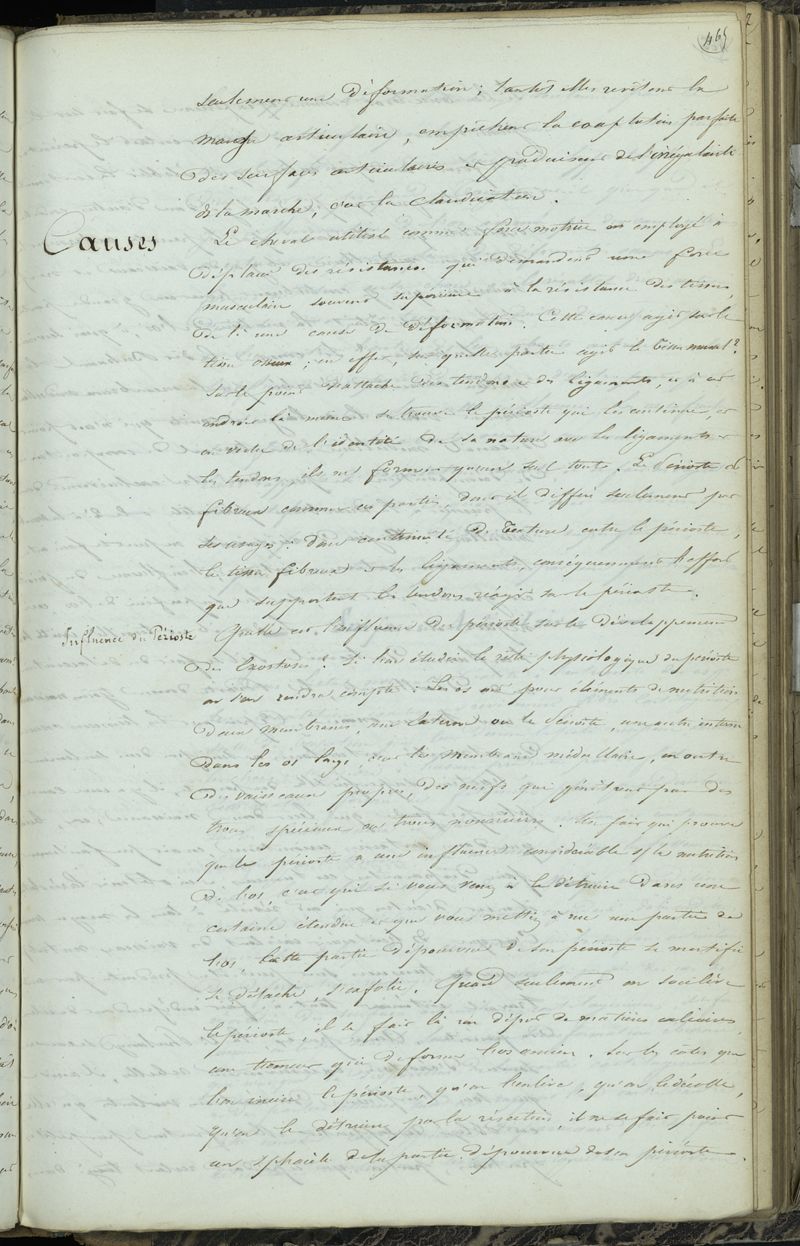 465
seulement une déformation ; tantôt elles revêtent la
marge articulaire, empêchent la coaptation parfaite
des surfaces articulaires et produisent de l'inégalité
de la marche, c'est la claudication.
Causes
Le cheval utilisé comme force motrice est employé à
déplacer des résistances qui demandent une force
musculaire souvent supérieure à la résistance des tissus,
de là une cause de déformation. Cette cause agit sur le
tissu osseux ; en effet, sur quelle partie agit le tissu muscul.?
Sur le point d'attache des tendons et des ligaments, et à cet
endroit là même se trouve le périoste qui les continue, et
en vertu de l'identité de sa nature avec les ligaments et
les tendons, ils ne forment qu'un seul tout. Le Périoste est
fibreux comme ces parties, donc il diffère seulement par
ses usages : donc continuité de texture entre le périoste,
le tissu fibreux et les ligaments, conséquemment l'effort
que supportent les tendons réagit sur le périoste.
Influence du Périoste
Quelle est l'influence du périoste sur le développement
des Exostoses ? Si l'on étudie le rôle physiologique du périoste
on s'en rendra compte : Les os ont pour éléments de nutrition
deux membranes, une externe ou le Périoste, une autre interne
dans les os longs, c'est la membrane médullaire, en outre
des vaisseaux propres, des nerfs qui pénètrent par des
trous spéciaux ou trous nourriciers. Un fait qui prouve
que le périoste a une influence considérable s/ la nutrition
de l'os, c'est que si vous venez à le détruire dans une
certaine étendue et que vous mettiez à nue une partie de
l'os, cette partie dépourvue de son périoste se mortifie
se détache, s'exfolie. Quand seulement on soulève
le périoste, il se fait là un dépôt de matières calcaires,
une tumeur qui déforme l'os ancien. Sur les côtes que
l'on incise le périoste, qu'on l'enlève, qu'on le décolle,
qu'on le détruise par la résection, il ne se fait point
un sphacèle de la partie dépourvue de son périoste.